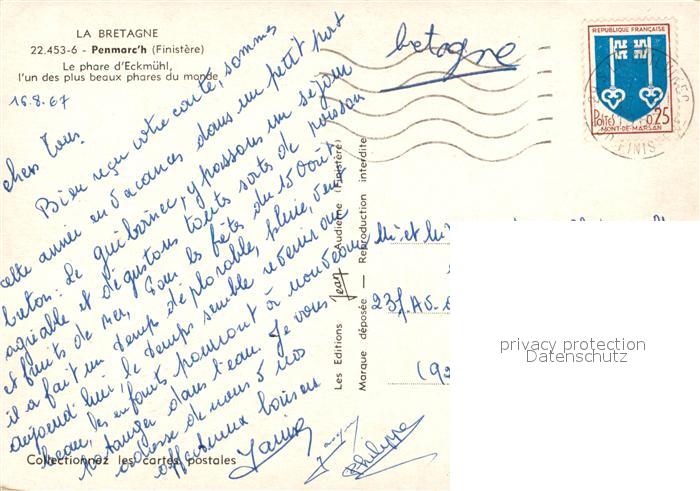 LA BRETAGNE
22.453-6 - Penmarc'h (Finistère)
Le phare d'Eckmühl,
l'un des plus beaux phares du monde
16.8.67
chers Tous.
Bien reçu votre carte, sommes
cette année en vacances dans un petit port
breton: Le Guilvinec, y passons un séjour
agréable et dégustons toutes sorts de poisson
et fruits de mer. Pour les fêtes du 15 Août
il a fait un temps déplorable, pluie, vent
aujourd'hui, le temps semble revenir au
beau, les enfants pourront à nouveau
patauger dans l'eau. Je vous
adresse de nous 5 nos
affectueux baisers
Philippe
Collectionnez les cartes postales
Les Editions Jean Audierne (Finistère)
Marque déposée — Reproduction interdite
bretagne
REPUBLIQUE FRANÇAISE
POSTES 0,25
MONT-DE-MARSAN
FINIS
privacy protection
Datenschutz